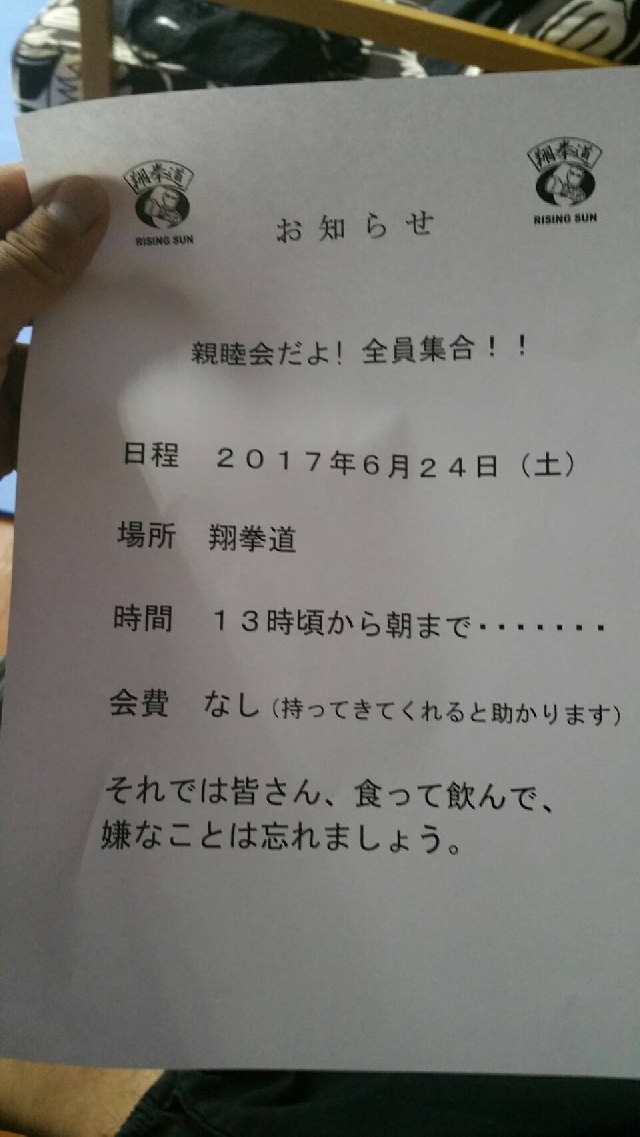 翔拳道
RISING SUN
翔拳道
RISING SUN
お知らせ
親睦会だよ！全員集合！！
日程　２０１７年６月２４日（土）
場所　翔拳道
時間　１３時頃から朝まで・・・・・・・
会費　なし（持ってきてくれると助かります）
それでは皆さん、食って飲んで、
嫌なことは忘れましょう。